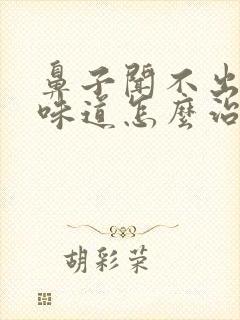 鼻子聞不出
味道怎麼治
胡彩荣